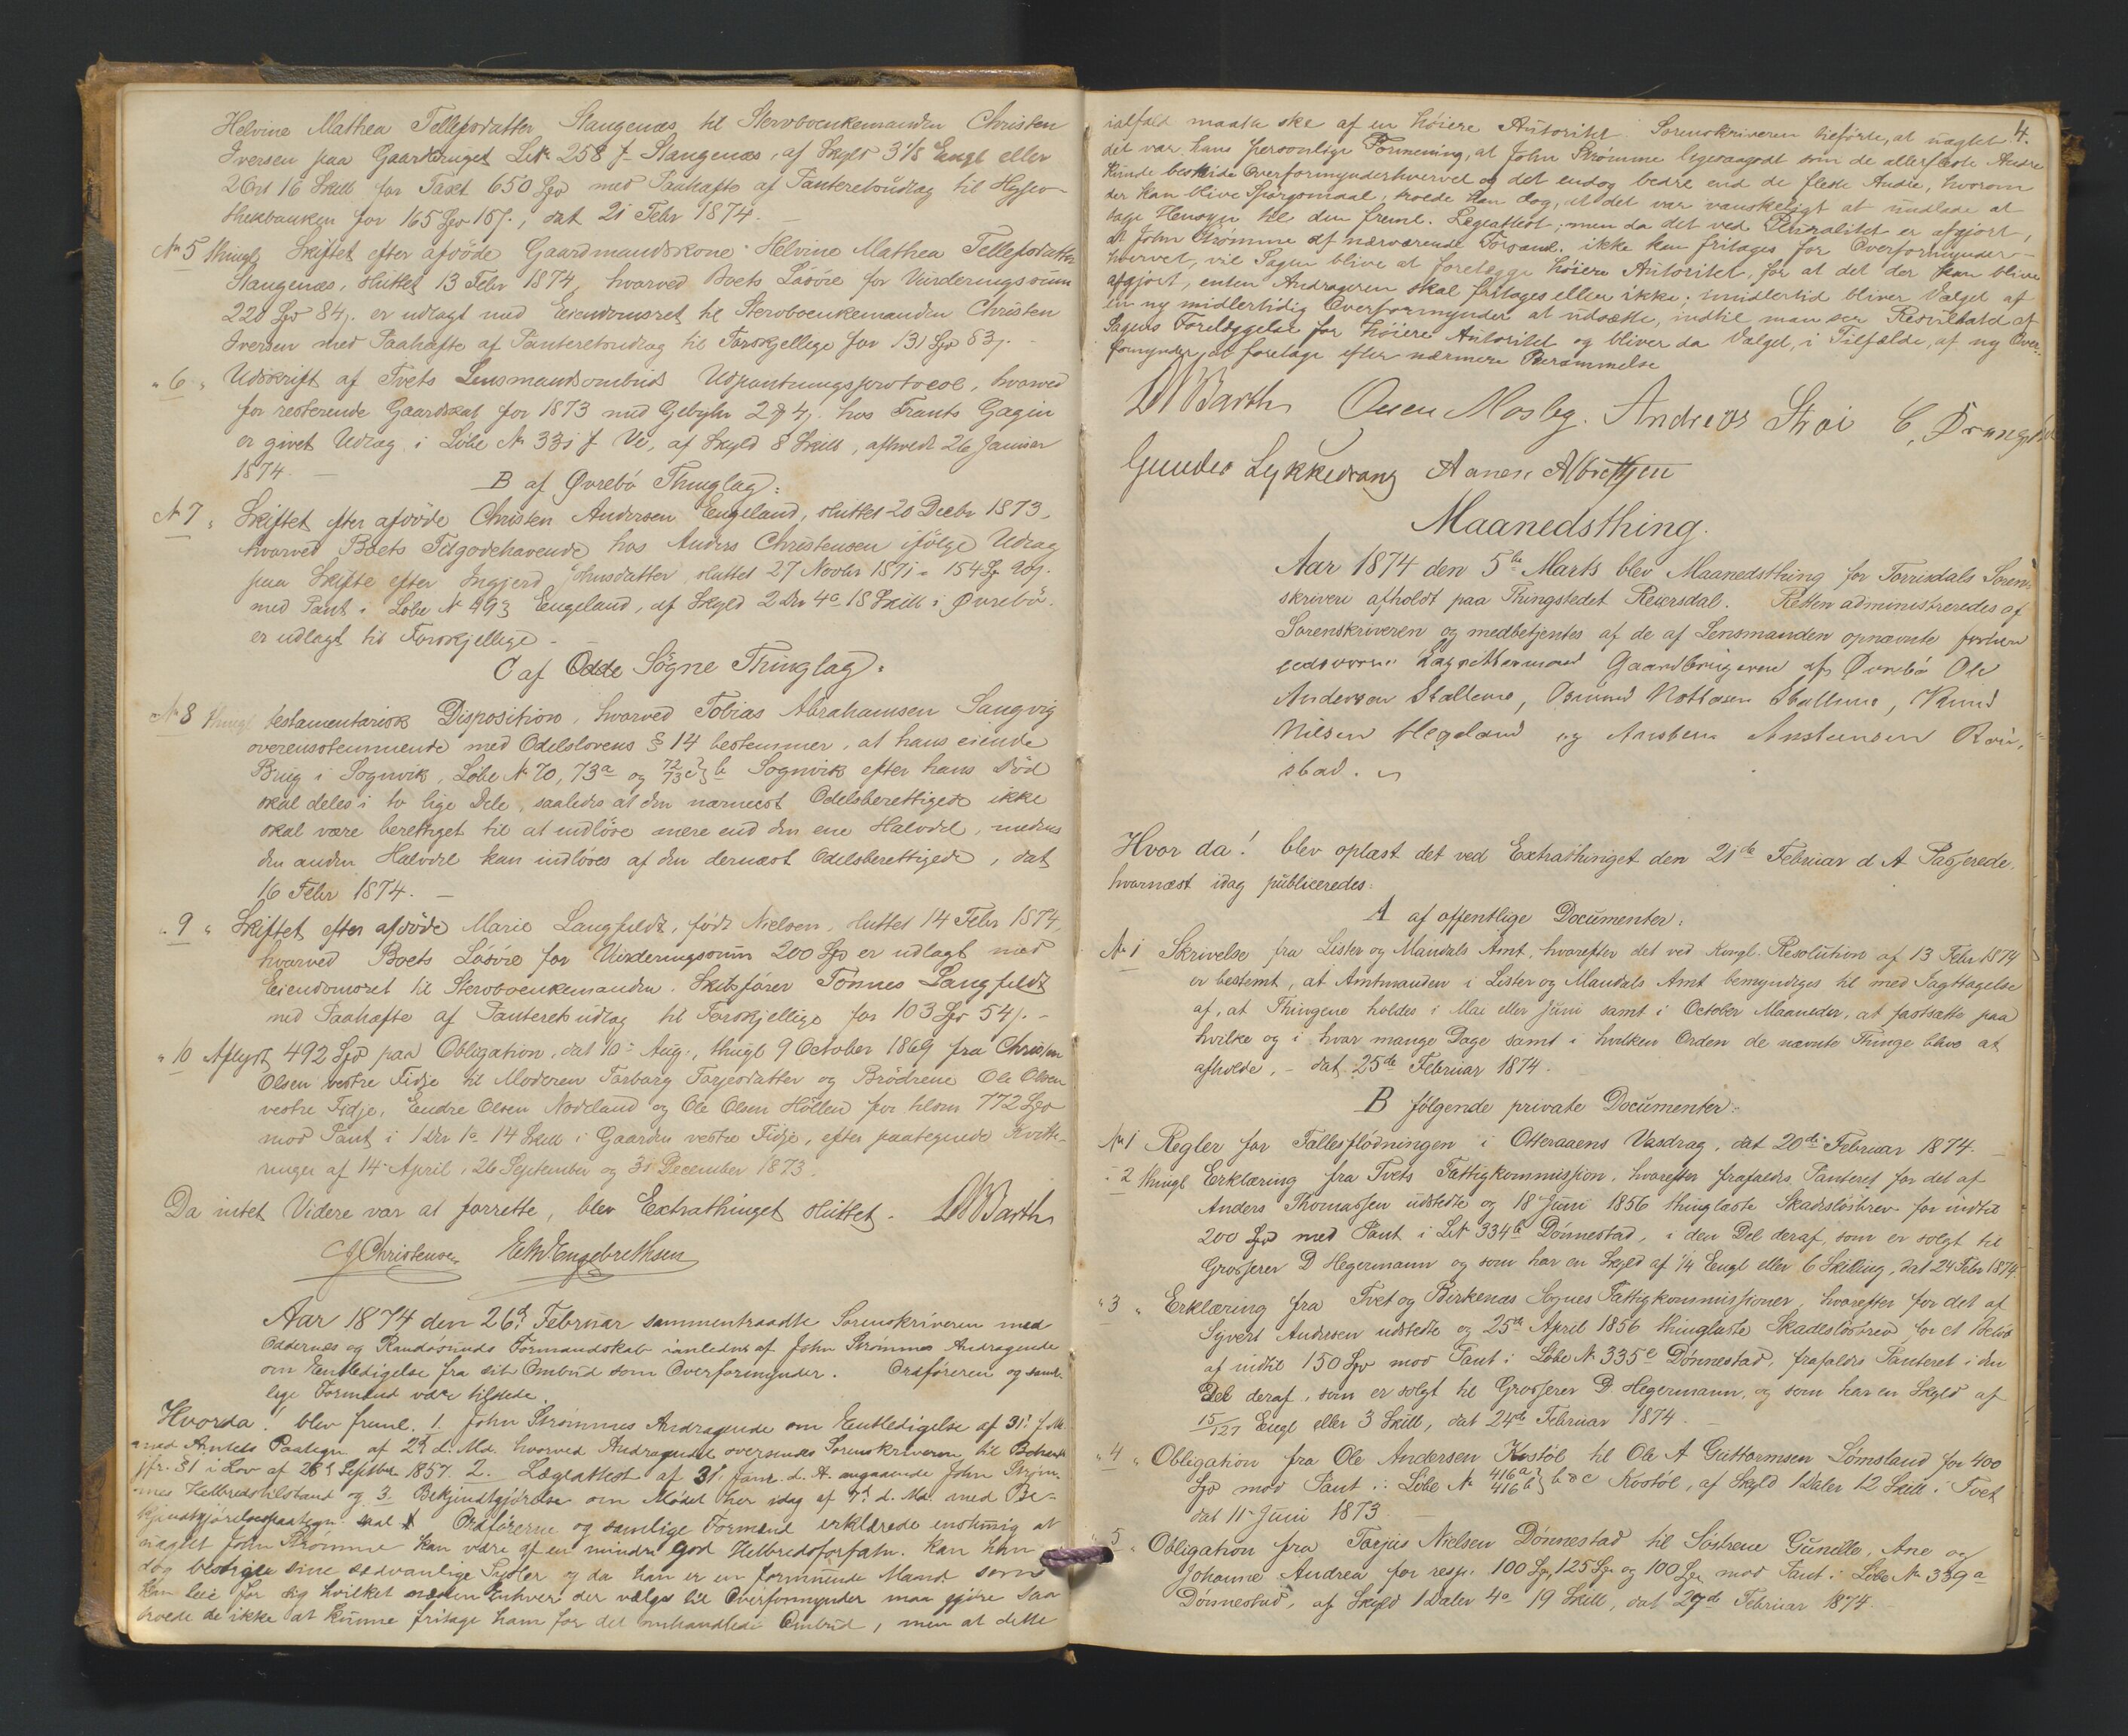 Helvine Mathea Tellefsdatter Stangenæs til Stervboenkemanden Christen
Iversen paa Gaardbruget Lnr 258 f Stangenæs, af Skyld 3 1/8 Engl eller
2 Ort 16 Skill for Taxt 650 Spd med Paahæfte af Panteretsudlag til Hypo-
thekbanken for 165 Spd 16 s., dat 21 Febr 1874.
No 5 thingl Skiftet efter afdöde Gaardmandskone Helvine Mathea Tellefsdatter
Stangenæs, sluttet 13 Febr 1874, hvorved Boets Lösöre for Vurderingssum
220 Spd 84 s. er udlagt med Eiendomsret til Stervboenkemanden Christen
Iversen med Paahæfte af Panteretsudlag til Forskjellige for 131 Spd 83 s.
" 6 " Udskrift af Tvets Lensmandsombuds Udpantningsprotocol, hvorved
for resterende Gaardskat for 1873 med Gebyhr 2 4 s. hos Frants Gagin
er givet Udlæg i Löbe No 331 f Ve, af Skyld 8 Skill, afhredt 26 Januar
1874. —
B af Øvrebö Thinglag:
No 7 " Skiftet efter afdöde Christen Andersen Engeland, sluttet 20 Decbr 1873,
hvorved Boets Tilgodehavende hos Anders Christensen ifölge Udlæg
paa Skifte efter Ingjerd sluttet 27 Novbr 1871 = 154 Sp 90 s.
med Pant i Löbe No 493 Engeland, af Skyld 2 Dlr 4 o 18 Skill i Øvrebö.
er udlagt til Forskjellige. —
C af Odde Sögne Thinglag:
No 8 thingl testamentarisk Disposition, hvorved Tobias Abrahamsen Sangvig
overensstemmende med Odelslovens § 14 bestemmer, at hans eiende
Brug i Sognvik, Löbe No 70, 73a og 72 73c } b Sognvik efter hans Död
skal deles i to lige Dele, saaledes at den nærmest Odelsberettigede ikke
skal være berettiget til at indlöse mere end den ene Halvdel, medens
den anden Halvdel kan indlöses af den dernæst Odelsberettigede, dat
16 Febr 1874. —
" 9 " Skiftet efter afdöde Marie Langfeldt, födt Nielsen, sluttet 14 Febr 1874,
hvorved Boets Lösöre for Vurderingssum 200 Spd er udlagt med
Eiendomsret til Stervboenkemanden Skibsförer Tönnes Langfeldt
med Paahæfte af Panteretsudlag til Forskjellige for 103 Spd 54 s. —
" 10 Aflyst 492 Spd paa Obligation, dat 10 Aug., thingl 9 October 1869 fra Christen
Olsen vestre Tidje til Moderen Tarbarg Tarjesdatter og Brödrene Ole Olsen
vestre Tidje, Endre Olsen Nodeland og Ole Olsen Höllen for tilsm 772 Spd
mod Pant i 1 Dlr 1 o 14 Skill i Gaarden vestre Tidje, efter paategnede Kvitte-
ringer af 14 April, 26 September og 31 December 1873.
Da intet Videre var at forrette, blev Extrathinget sluttet. Barth
Christensen Engebrethsen
Aar 1874 den 26d Februar sammentraadte Sorenskriveren med
Oddernes og Randösunds Formandskab i anledn. af John Strömmes Andragende
om Entledigelse fra sit Ombud som Overformynder. Ordföreren og samt-
lige Formænd vare tilstede.
Hvorda! blev freml. 1. John Strömmes Andragende om Entledigelse af 31 f. M.
med Amtets Paategn. af 2d d. Md. hvorved Andragendet oversendes Sorenskriveren til
jfr. § 1 i Lov af 28d Septbr 1857. 2. Lægeattest af 31 Janr. d. A. angaaende John Ström-
mes Helbredstilstand og 3. Bekjendtgjörelse om Mödet her idag af 7d d. Md. med Be-
kjendtgjörelsespaategn. Ordförerne og samtlige Formænd erklærede enstemmig at
uagtet John Strömme kan være af en mindre god Helbredsforfatn. kan han
dog besörge sine sædvanlige Sysler og da han er en formuende Mand som
kan leie for sig hvilket næsten Enhver der vælges til Overformynder maa gjöre saa
troede de ikke at kunne fritage ham for det omhandlede Ombud, men at dette
4.
ialfald maatte ske af en höiere Autoritet. Sorenskriveren tilförte, at uagtet
det var hans personlige Formening, at John Strömme ligesaagodt som de allerfleste Andre
kunde bestride Overformynderhvervet og det endog bedre end de fleste Andre, hvorom
der kan blive Spörgsmaal, troede han dog, at det var vanskeligt at undlade at
tage Hensyn til den freml. Lægeattest; men da det ved Pluralitet er afgjort,
at John Strömme af nærværende Forsaml. ikke kan fritages for Overformynder-
hvervet, vil Sagen blive at forelægge höiere Autoritet, for at det der kan blive
afgjort, enten Andrageren skal fritages eller ikke; imidlertid bliver Valget af
en ny midlertidig Overformynder at udsætte, indtil man ser Resultatet af
Sagens Forelæggelse for höiere Autoritet og bliver da Valget, i Tilfælde, af ny Over-
formynder at foretage efter nærmere Berammelse
Barth Ouen Mosby. Andreas Strai C. Drangsholt
Gunder Lykkedrang Aanen Albretsen
Maanedsthing.
Aar 1874 den 5te Marts blev Maanedsthing for Torrisdals Soren-
skriveri afholdt paa Thingstedet Reiersdal. Retten administreredes af
Sorenskriveren og medbetjentes af de af Lensmanden opnævnte forhen
eedsvorne Lagrettesmænd Gaardbrugerne af Øvrebö Ole
Andersen Stallemo, Osmund Nottesen Stallemo, Knud
Nilsen Hegeland og Aanstein Ansteinsen Rou-
stad.
Hvor da! blev oplæst det ved Extrathinget den 21de Februar d A Passerede,
hvornæst idag publiceredes:
A af offentlige Documenter:
No 1 Skrivelse fra Lister og Mandals Amt, hvorefter det ved Kongl. Resolution af 13 Febr 1874
er bestemt, at Amtmanden i Lister og Mandals Amt bemyndiges til med Iagttagelse
af, at Thingene holdes i Mai eller Juni samt i October Maaneder, at fastsætte paa
hvilke og i hvor mange Dage samt i hvilken Orden de nævnte Thinge blive at
afholde, — dat 25de Februar 1874.
B fölgende private Documenter:
No 1 Regler for Fællesflödningen i Otteraaens Vasdrag, dat 20de Februar 1874. —
" 2 thingl Erklæring fra Tvets Fattigkommission, hvorefter frafaldes Panteret for det af
Anders Thomassen udstedte og 18 Juni 1856 thinglæste Skadeslösbrev for indtil
200 Spd med Pant i Lnr 334b Dönnestad, i den Del deraf, som er solgt til
Grosserer D Hegermann og som har en Skyld af 1/4 Engl eller 6 Skilling, dat 24 Febr 1874.
" 3 " Erklæring fra Tvet og Birkenæs Sognes Fattigkommissioner, hvorefter for det af
Syvert Andersen udstedte og 25de April 1856 thinglæste Skadeslösbrev for et Belöb
af indtil 150 Spd mod Pant i Löbe No 335c Dönnestad, frafaldes Panteret i den
Del deraf, som er solgt til Grosserer D Hegermann, og som har en Skyld af
15/127 Engl eller 3 Skill, dat 24de Februar 1874. —
" 4 " Obligation fra Ole Andersen Kostöl til Ole A Guttormsen Lömsland for 400
Spd mod Pant i Löbe No 416a 416b } b & c Kostöl, af Skyld 1 Daler 12 Skill i Tvet
dat 11 Juni 1873 —
" 5 " Obligation fra Tarjus Nielsen Dönnestad til Söstrene Gunille, Ane og
Johanne Andrea for resp. 100 Sp, 125 Sp og 100 Sp mod Pant i Löbe No 339a
Dönnestad, af Skyld 1 Daler 4 o 19 Skill, dat 27de Februar 1874.